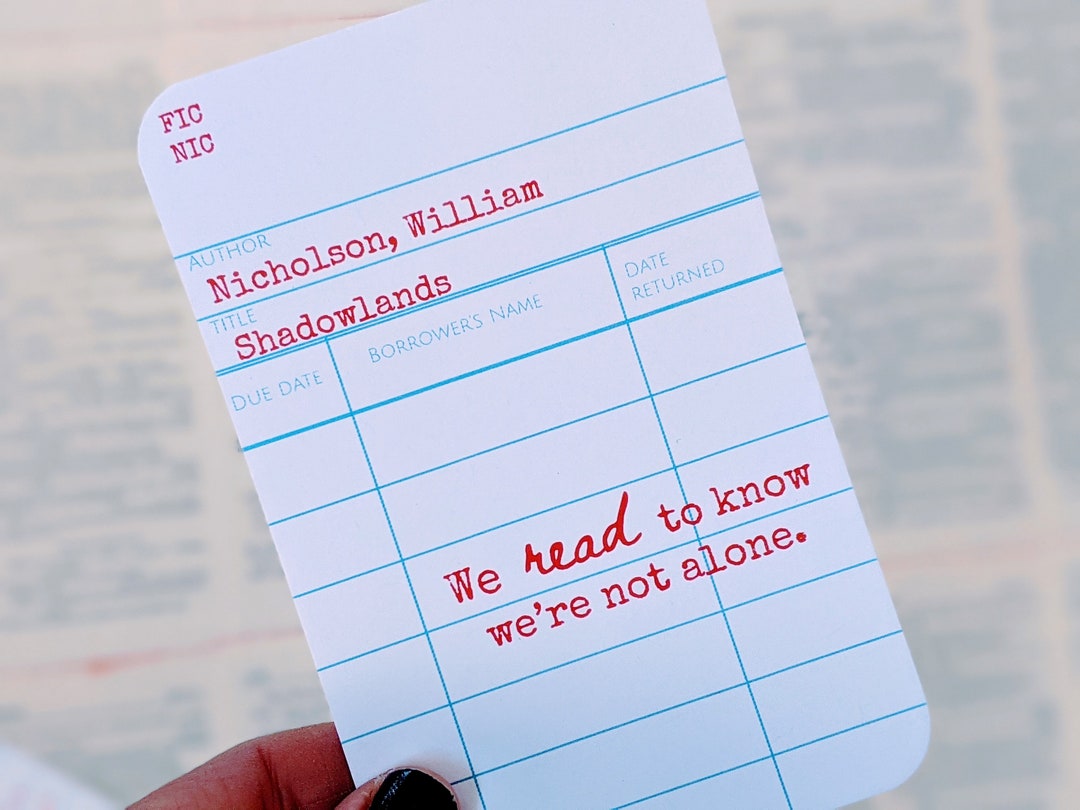 FIC
NIC
AUTHOR
Nicholson, William
TITLE
Shadowlands
DUE DATE
BORROWER'S NAME
DATE
RETURNED
We read to know
we're not alone.